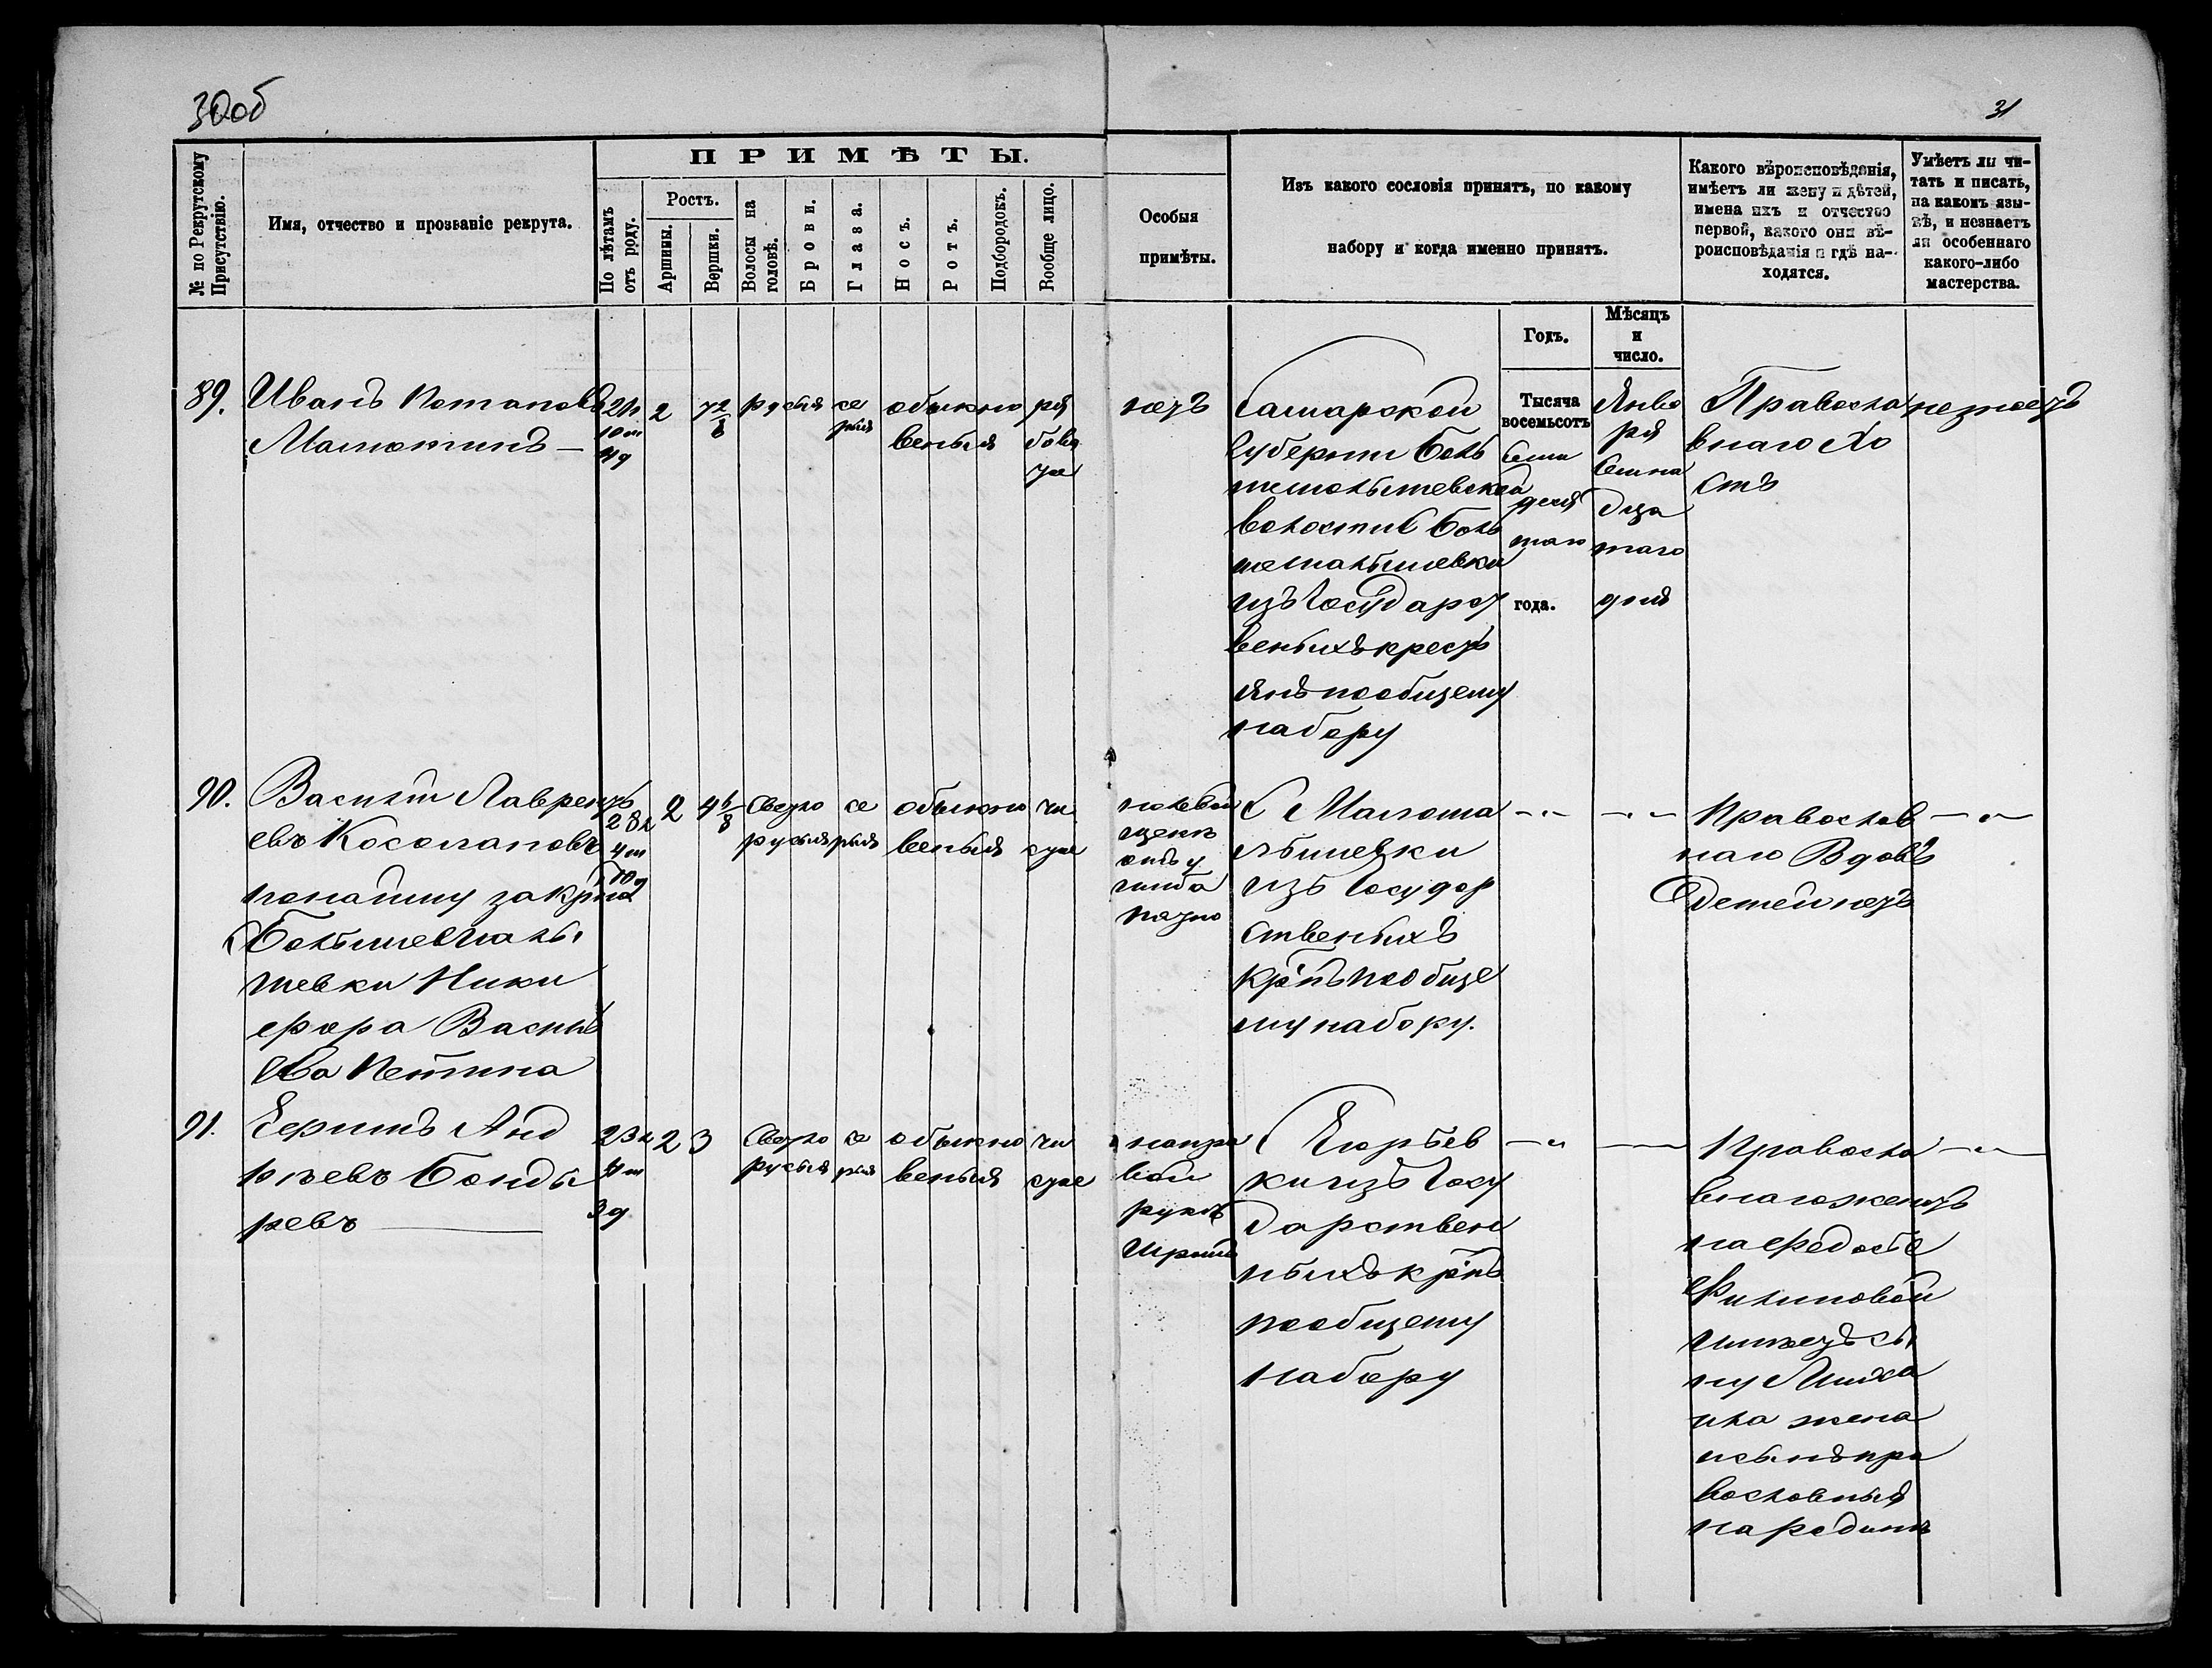 30об
31
№ по Рекрутскому Присутствію.
Имя, отчество и прозваніе рекрута.
ПРИМѢТЫ.
По лѣтамъ отъ роду.
Ростъ.
Аршины.
Вершки.
Волосы на головѣ.
Брови.
Глаза.
Носъ.
Ротъ.
Подбородокъ.
Вообще лицо.
Особыя
примѣты.
Изъ какого сословія принятъ, по какому
набору и когда именно принятъ.
Какого вѣроисповѣданія,
имѣетъ ли жену и дѣтей,
имена ихъ и отчество
первой, какого они вѣ-
роисповѣданія и гдѣ на-
ходятся.
Умѣетъ ли чи-
тать и писать,
на какомъ язы-
кѣ, и незнаетъ
ли особеннаго
какого-либо
мастерства.
Годъ.
Мѣсяцъ
и
число.
89.
Иванъ Потаповъ
2
русыя
се
рыя
обыкно
веныя
ря
бова
тое
нетъ
Самарской
Губернии Боль
волости С Боль
изъ Государс
веныхъ крест
янъ пообщему
набору
Тысяча
восемьсотъ
Семи
деся
таго
года.
Янва
ря
Семна
дца
таго
дня
Правосла
внаго Хо
стъ
незнаетъ
90.
Василий Лаврентъ
евъ Косолаповъ
28л
4м
10д
понайму закрна
С Большемалы
шевки Ники
фора Василь
ева
2
4 6/8
Светло
русыя
се
рыя
обыкно
веныя
чи
стое
налевой
щеке
отъ у
шиба
С Малома
лышевки
изъ Государ
ственыхъ
крнъ пообще
му набору.
Православ
наго Вдовъ
детей нетъ
91.
Анд
реевъ Бонды
ревъ
23л
3д
2
3
Светло
русыя
се
рыя
обыкно
веныя
чи
стое
направо
вой
руке
шрамъ
С Егорьев
ки изъ Госу
дарствен
ныхъ крнъ
пообщему
набору
Правосла
внаго женатъ
на Федосье
Филиповой
имеетъ сы
ну Миха
ила жена
исынъ пра
вославныя
народине